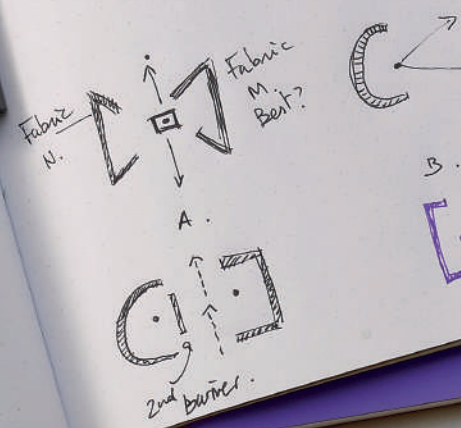 Fabric
N.
Fabric
M.
Best?
A.
B.
2nd Barrier.